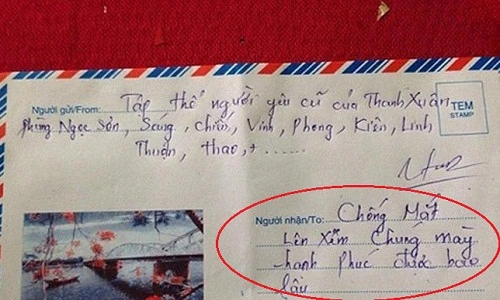 Người gửi/From: Tập thể người yêu cũ của Thanh Xuân
phùng Ngọc Sơn, Sáng, Chiến, Vinh, Phong, Kiên, Linh
Thuận, thao, + ......
TEM
STAMP
Người nhận/To: Chống Mắt
Lên Xem Chúng mày
hạnh phúc được bao
lâu